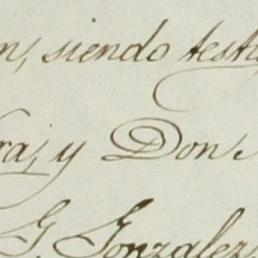 n, siendo testi
ra, y Don
G. Gonzalez